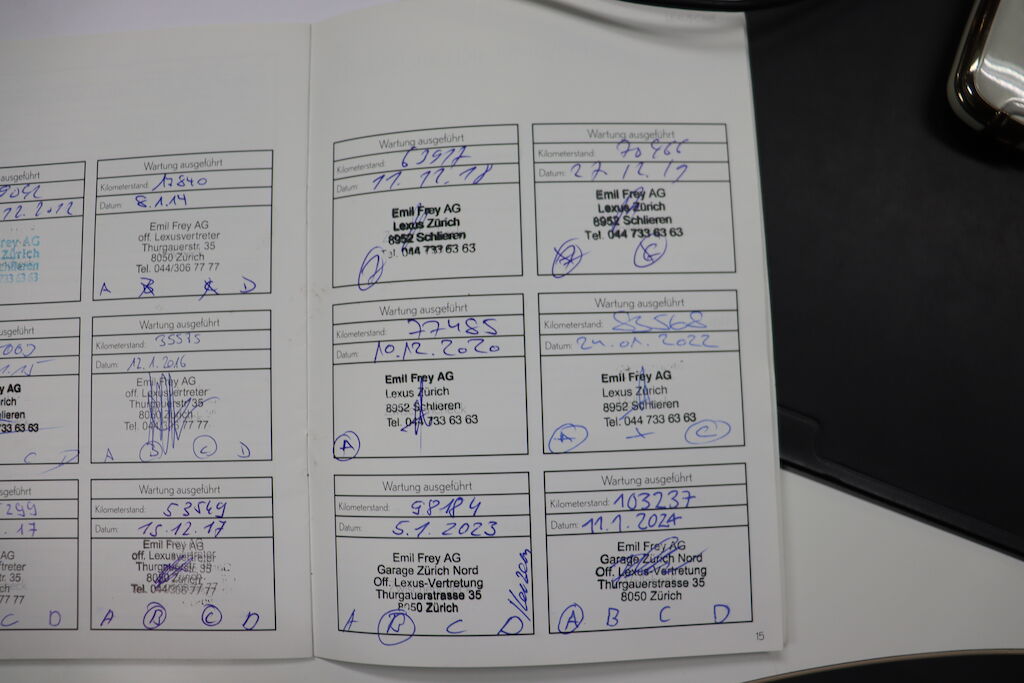 sgeführt
9042
12.2012
rey AG
Zürich
chlieren
733 63 63
Wartung ausgeführt
Kilometerstand: 17840
Datum: 8.1.14
Emil Frey AG
off. Lexusvertreter
Thurgauerstr. 35
8050 Zürich
Tel. 044/306 77 77
A B C D
sgeführt
y AG
rich
lieren
733 63 63
C D
Wartung ausgeführt
Kilometerstand: 35535
Datum: 12.1.2016
Emil Frey AG
off. Lexusvertreter
Thurgauerstr. 35
8050 Zürich
Tel. 044/306 77 77
A B C D
sgeführt
299
.17
AG
treter
tr. 35
ich
77 77
C D
Wartung ausgeführt
Kilometerstand: 53549
Datum: 15.12.17
Emil Frey AG
off. Lexusvertreter
Thurgauerstr. 35
8050 Zürich
Tel. 044/306 77 77
A B C D
Wartung ausgeführt
Kilometerstand: 63917
Datum: 11.12.18
Emil Frey AG
Lexus Zürich
8952 Schlieren
Tel. 044 733 63 63
Wartung ausgeführt
Kilometerstand: 70466
Datum: 27.12.19
Emil Frey AG
Lexus Zürich
8952 Schlieren
Tel. 044 733 63 63
A C
Wartung ausgeführt
Kilometerstand: 77485
Datum: 10.12.2020
Emil Frey AG
Lexus Zürich
8952 Schlieren
Tel. 044 733 63 63
A
Wartung ausgeführt
Kilometerstand: 83568
Datum: 24.01.2022
Emil Frey AG
Lexus Zürich
8952 Schlieren
Tel. 044 733 63 63
A C
Wartung ausgeführt
Kilometerstand: 98184
Datum: 5.1.2023
Emil Frey AG
Garage Zürich Nord
Off. Lexus-Vertretung
Thurgauerstrasse 35
8050 Zürich
A B C D
Wartung ausgeführt
Kilometerstand: 103237
Datum: 11.1.2024
Emil Frey AG
Garage Zürich Nord
Off. Lexus-Vertretung
Thurgauerstrasse 35
8050 Zürich
A B C D
15